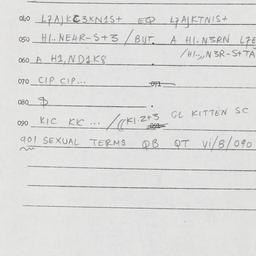 040 L7AJKC3XN1S+ EQ L7AJKTN1S+
050 H1..NE4R-S+3 / BUT. A H1.N3RN L7E
/H1..,N3R-S+TA
060 A H1,ND1K8
070 CIP CIP...
080
090 KIC KK ... /((K1.2+3 GL KITTEN SC
901 SEXUAL TERMS QB QT VI/B/090